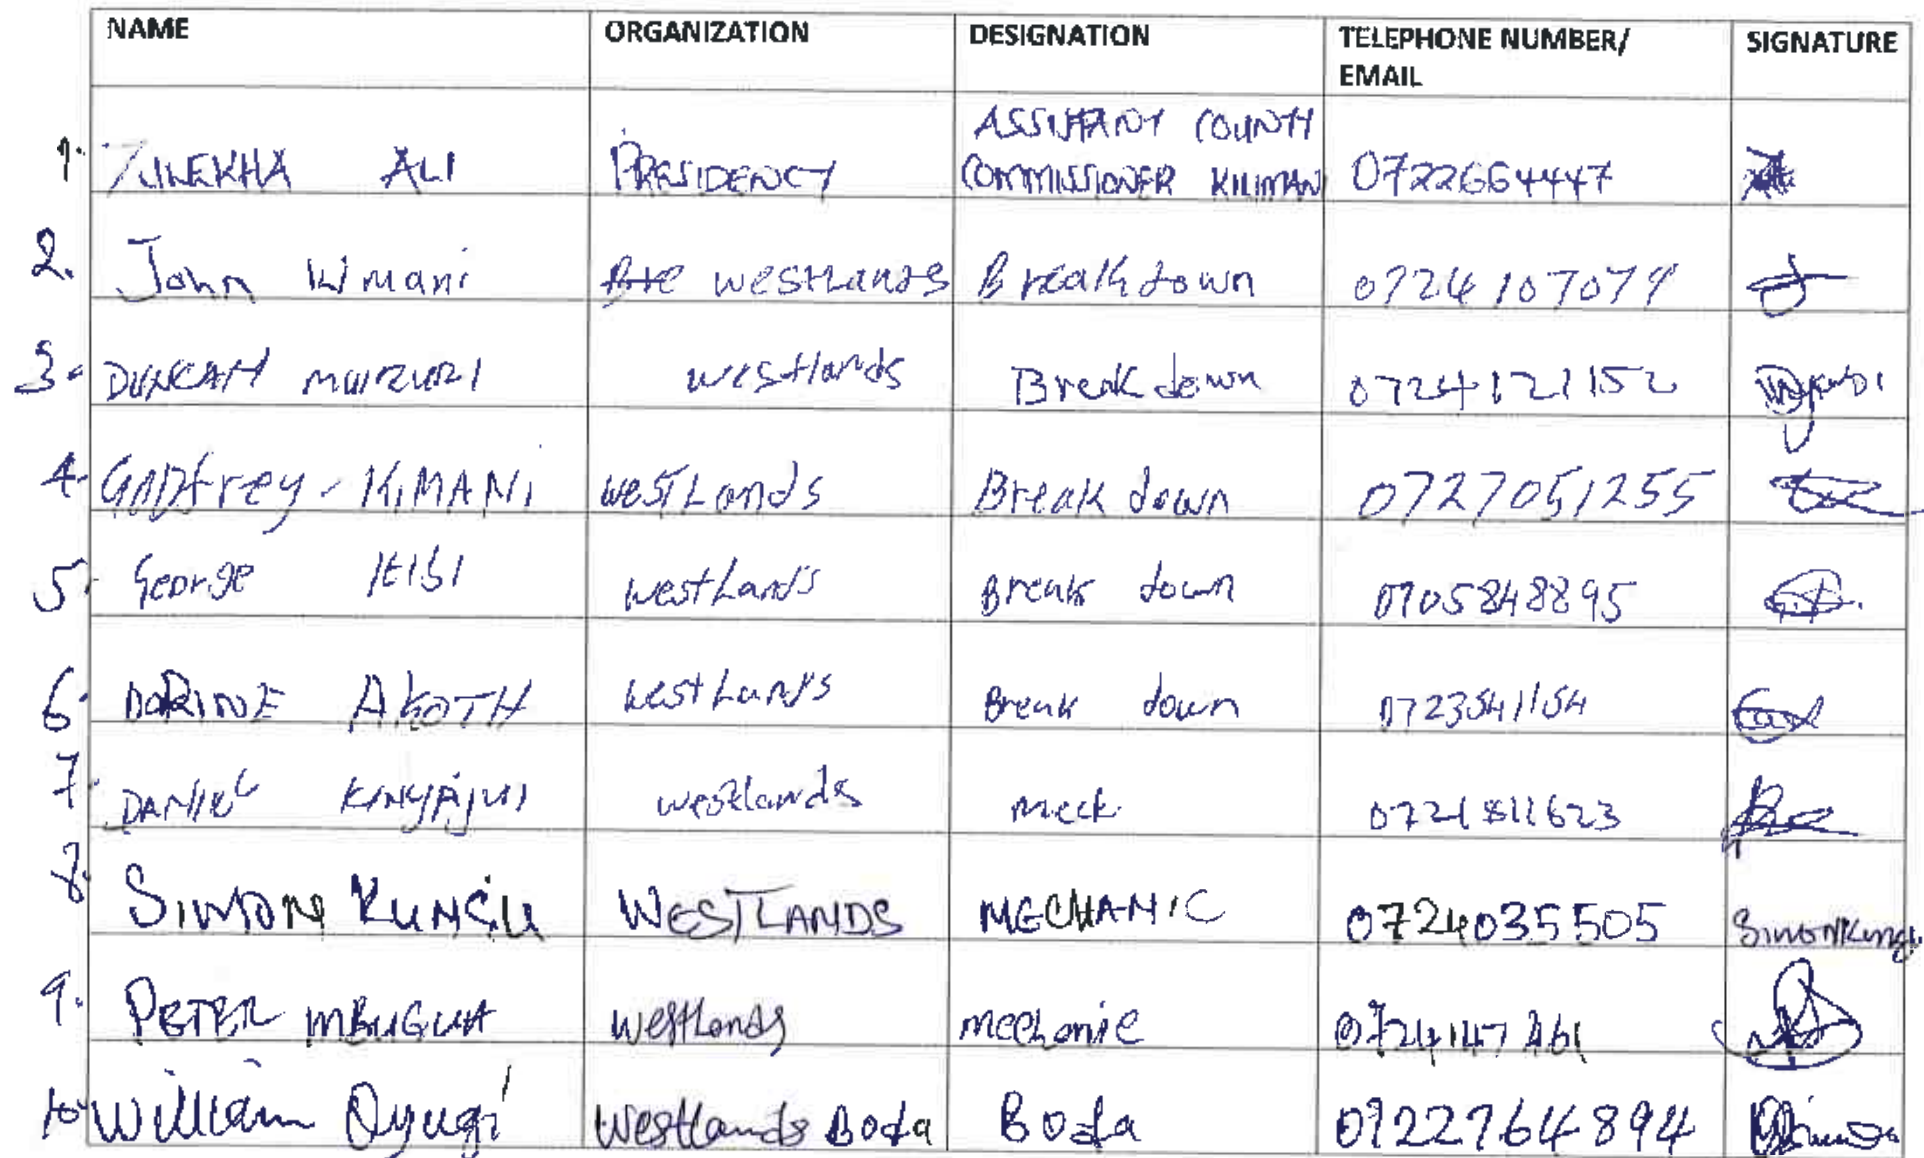 NAME ORGANIZATION DESIGNATION TELEPHONE NUMBER/ SIGNATURE
EMAIL
ASSISTANT COUNTY
1. ZULEKHA ALI PRESIDENCY COMMISSIONER KILIMANI 0722664447
2. John Kimani westLands Breakdown 0724107079
3. DUNCAN westlands Breakdown 0724121152
4. Godfrey - KIMANI westLands Break down 0727051255
5. George westLands Break down 0705848895
6. DORINE AKOTH westLands Break down 0723541154
7. DANIEL KINYANJUI westlands meck 0721811623
8. SIMON KUNGU WESTLANDS MECHANIC 0724035505 SIMONKungu
9. PETER MBUGUA Westlands mechanic
10. William Oyugi Westlands Boda Boda 0722764894